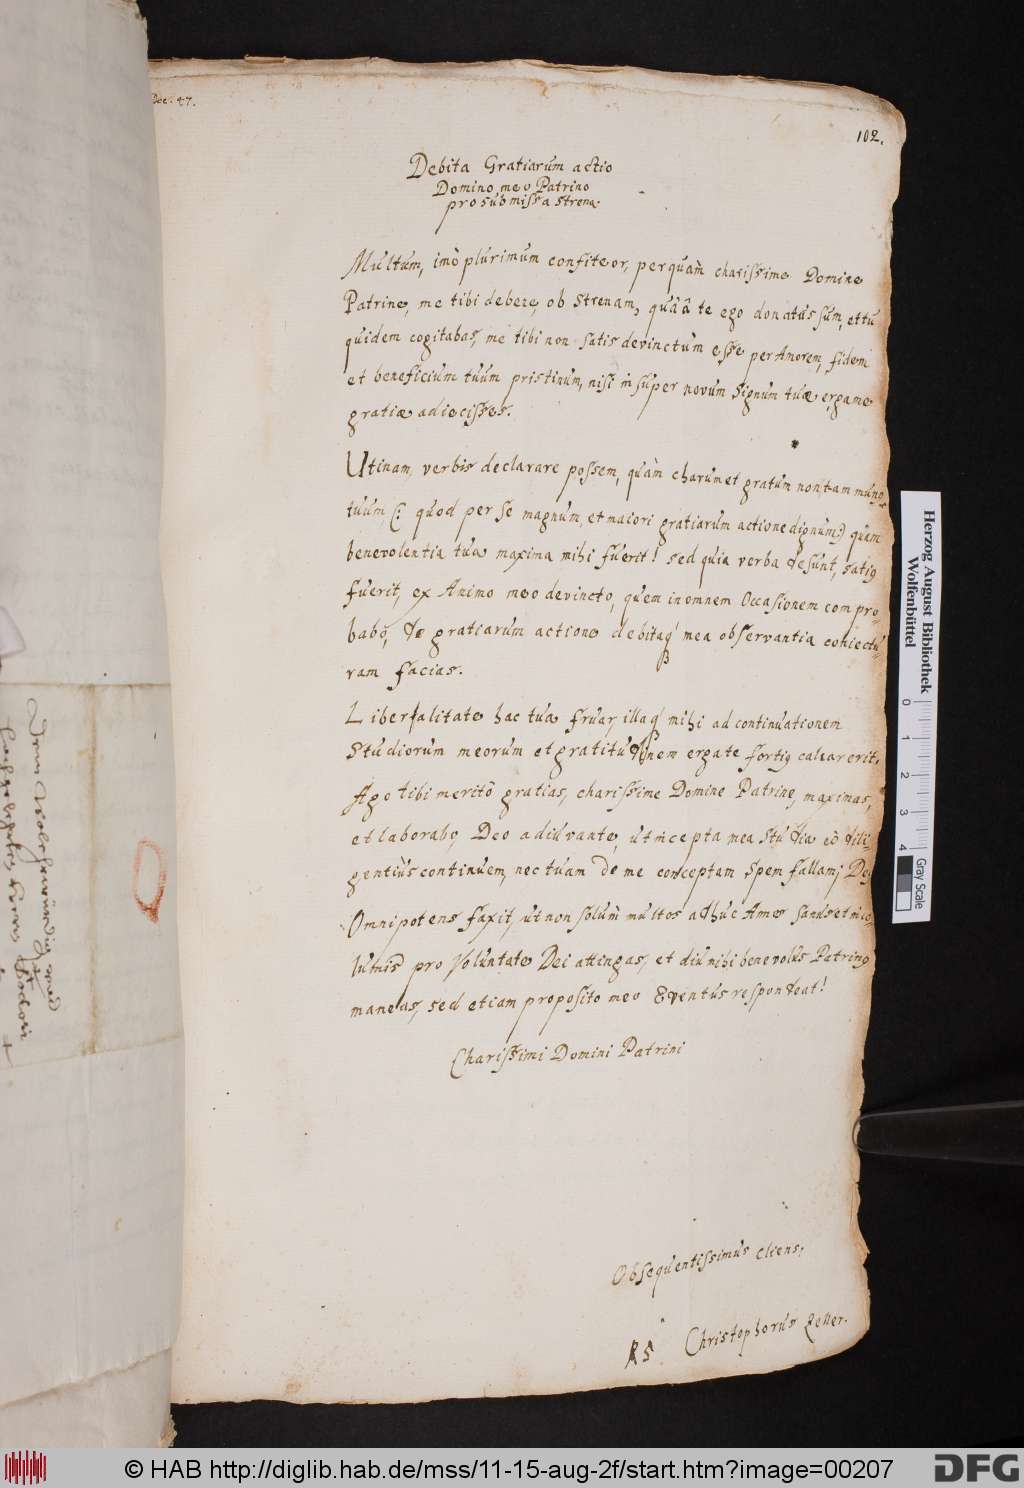 Dec. 47.
102.
Debita Gratiarum actio
Domino meo Patrino
pro submissa strena.
Multum, imò plurimum confiteor, perquàm charissime Domine
Patrine, me tibi debere, ob strenam, quââ te ego donatus sum, et tu
quidem cogitabas, me tibi non satis devinctum esse per Amorem, fidem
et beneficium tuum pristinum, nisi insuper novum signum tuæ erga me
gratiæ adiecisses.
Utinam, verbis declarare possem, quàm charum et gratum non tam
tuum (: quod per se magnum, et maiori gratiarum actione dignum:) quàm
benevolentia tua maxima mihi fuerit! sed quia verba desunt, satis
fuerit, ex Animo meo devincto, quem in omnem Occasionem compro-
babo, de gratiarum actione debitaq mea observantia coniectu-
ram facias.
Liberalitate hac tua fruar, illaq mihi ad continuationem
Studiorum meorum et gratitudinem erga te fortis calcar erit.
Ago tibi meritò gratias, charissime Domine Patrine, maximas,
et laborabo, Deo adiuvante, ut incepta mea studia eò dili-
gentiùs continuem, nec tuam de me conceptam spem fallam;
Omnipotens faxit, ut non solùm multos adhuc Annos
pro Voluntate Dei attingas, et diu mihi benevolus Patrinus
maneas, sed etiam proposito meo Eventus respondeat!
Charissimi Domini Patrini
Obsequentissimus cliens,
Christophorus Zeller.
Herzog August Bibliothek
Wolfenbüttel
0 1 2 3 4
Gray Scale
© HAB http://diglib.hab.de/mss/11-15-aug-2f/start.htm?image=00207
DFG